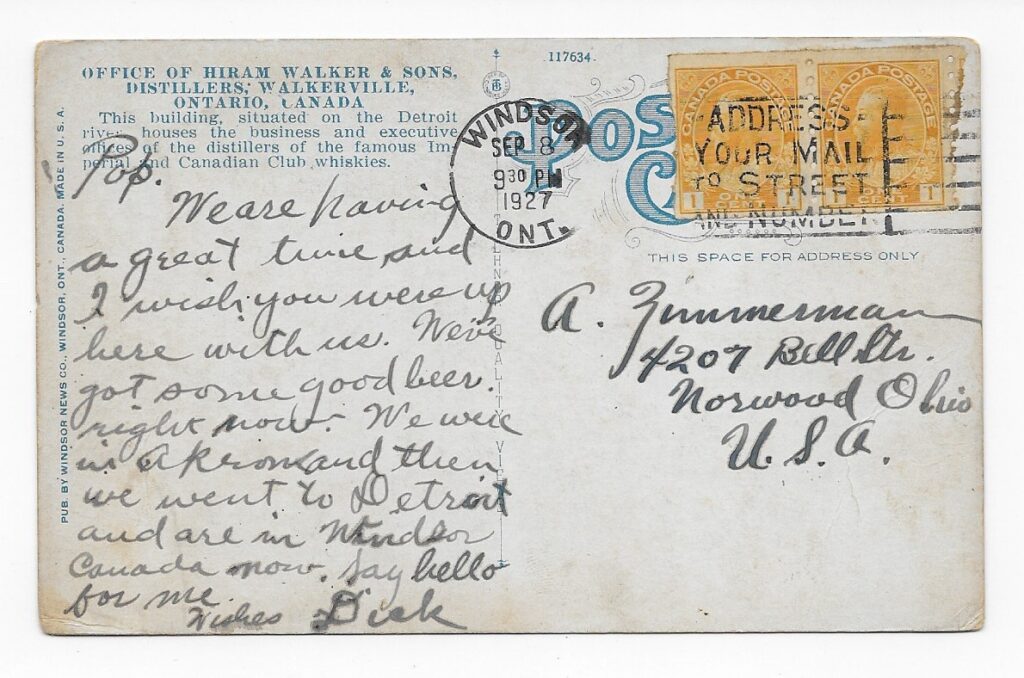 OFFICE OF HIRAM WALKER & SONS,
DISTILLERS, WALKERVILLE,
ONTARIO, CANADA
This building, situated on the Detroit
river, houses the business and executive
offices of the distillers of the famous Im-
perial and Canadian Club whiskies.
Pop.
We are having
a great time and
I wish you were up
here with us. We've
got some good beer.
right now. We were
in Akron and then
we went to Detroit
and are in Windsor
Canada now. Say hello
for me.
Wishes Dick
PUB. BY WINDSOR NEWS CO., WINDSOR, ONT., CANADA. MADE IN U. S. A.
117634
POS
C
WINDSOR
SEP 8
9 30 PM
1927
ONT.
CANADA POSTAGE
1 ONE CENT 1
CANADA POSTAGE
1 ONE CENT 1
ADDRESS
YOUR MAIL
TO STREET
AND NUMBER
THIS SPACE FOR ADDRESS ONLY
A. Zimmerman
4207 Bell Str.
Norwood Ohio
U. S. A.